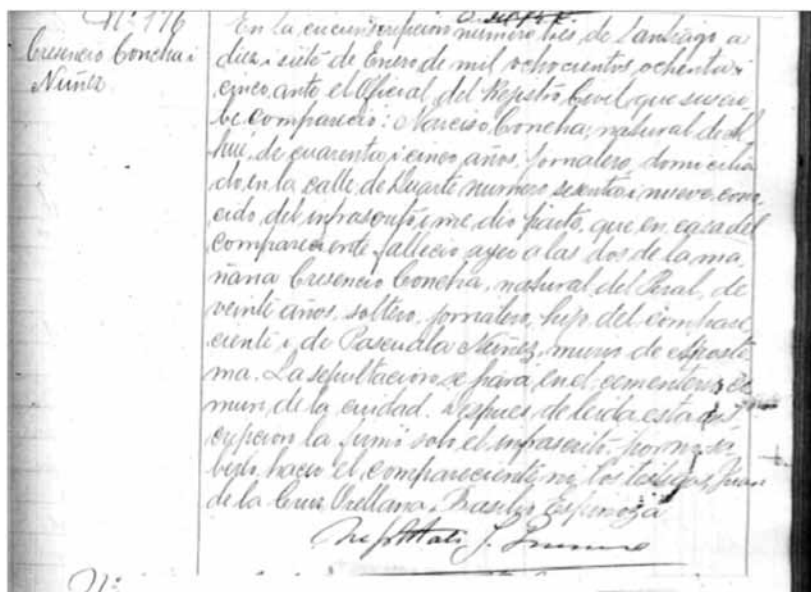 Nº 176
Cresencio Concha i
Nuñez
En la circunscripcion número tres de Santiago a
diez i siete de Enero de mil ochocientos ochenta i
cinco, ante el Oficial del Rejistro Civil que suscri
be, compareció: Narciso Concha, natural de Al
hué, de cuarenta i cinco años, jornalero, domicilia
do en la calle de Duarte número sesenta i nueve, cono
cido del infrascrito, i me dió parte, que en casa del
compareciente falleció ayer a las dos de la ma
ñana Cresencio Concha, natural del Peral, de
veinte años, soltero, jornalero, hijo del compare
ciente i de Pascuala Nuñez, murió de apostē
ma. La sepultacion se hará en el cementerio co
mun de la ciudad. Despues de leida esta ins
cripcion la firmó solo el infrascrito por no sa
berlo hacer el compareciente ni los testigos, Juan
de la Cruz Orellana i Basilio Espinoza
Nº